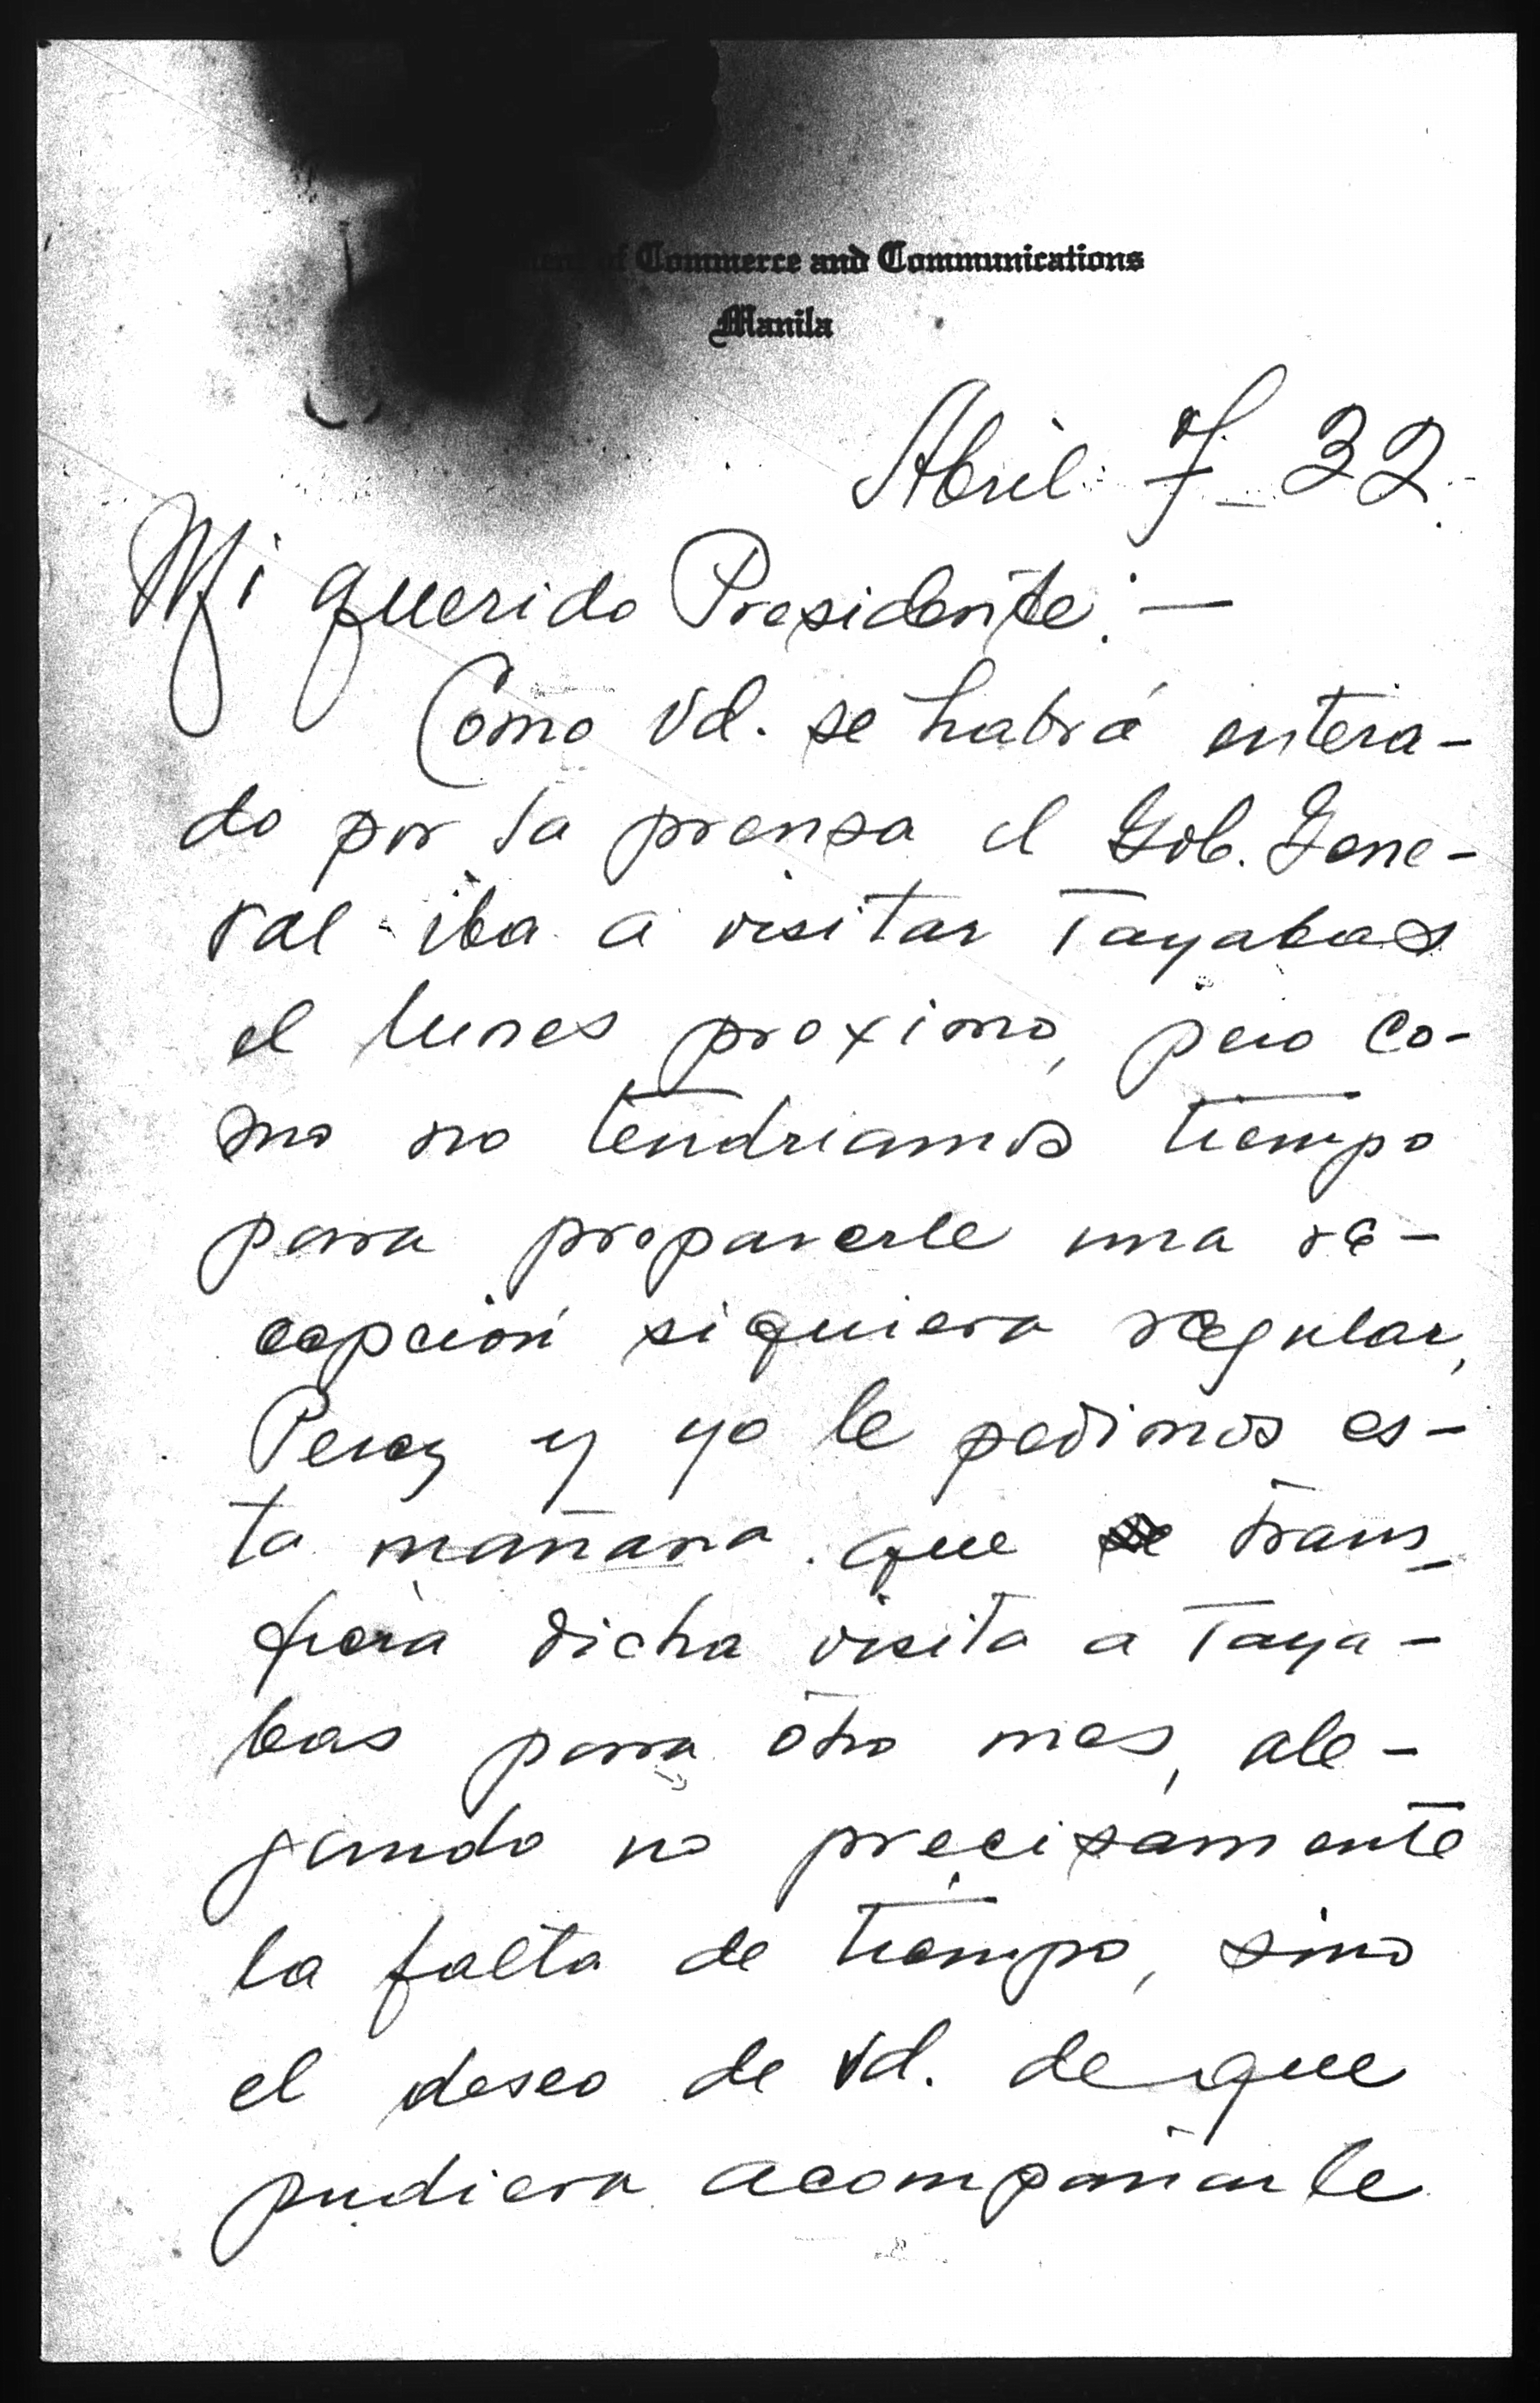 of Commerce and Communications
Manila
Abril 7_ 32.
Mi querido Presidente:—
Como Vd. se habrá entera-
do por la prensa el Gob. Gene-
ral iba a visitar Tayabas
el lunes proximo, pero co-
mo no tendriamos tiempo
para prepararle una re-
cepción siquiera regular,
Perez y yo le pedimos es-
ta mañana que trans-
fiera dicha visita a Taya-
bas para otro mes, ale-
gando no precisamente
la falta de tiempo, sino
el deseo de Vd. de que
pudiera acompañarle